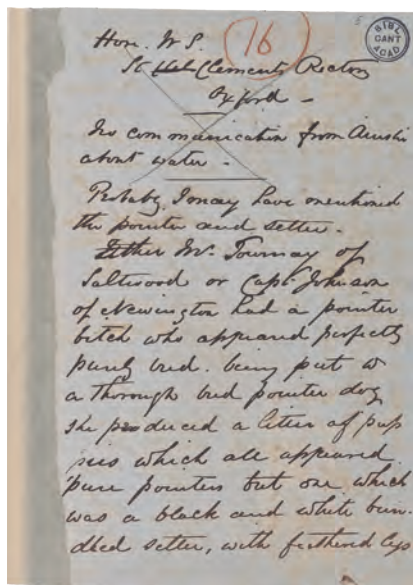 Hon. W S.
16
5
BIBL
CANT
ACAD
St Hel Clements Rectory
Oxford –
No communication from
about water –
Probably I may have mentioned
the pointer and setter.
Either Mr. Tournay of
Saltwood or Capt. Johnson
of Newington had a pointer
bitch who appeared perfectly
purely bred. being put to
a thorough bred pointer dog
she produced a litter of pup
pies which all appeared
pure pointers but one which
was a black and white brin-
dled setter, with feathered legs